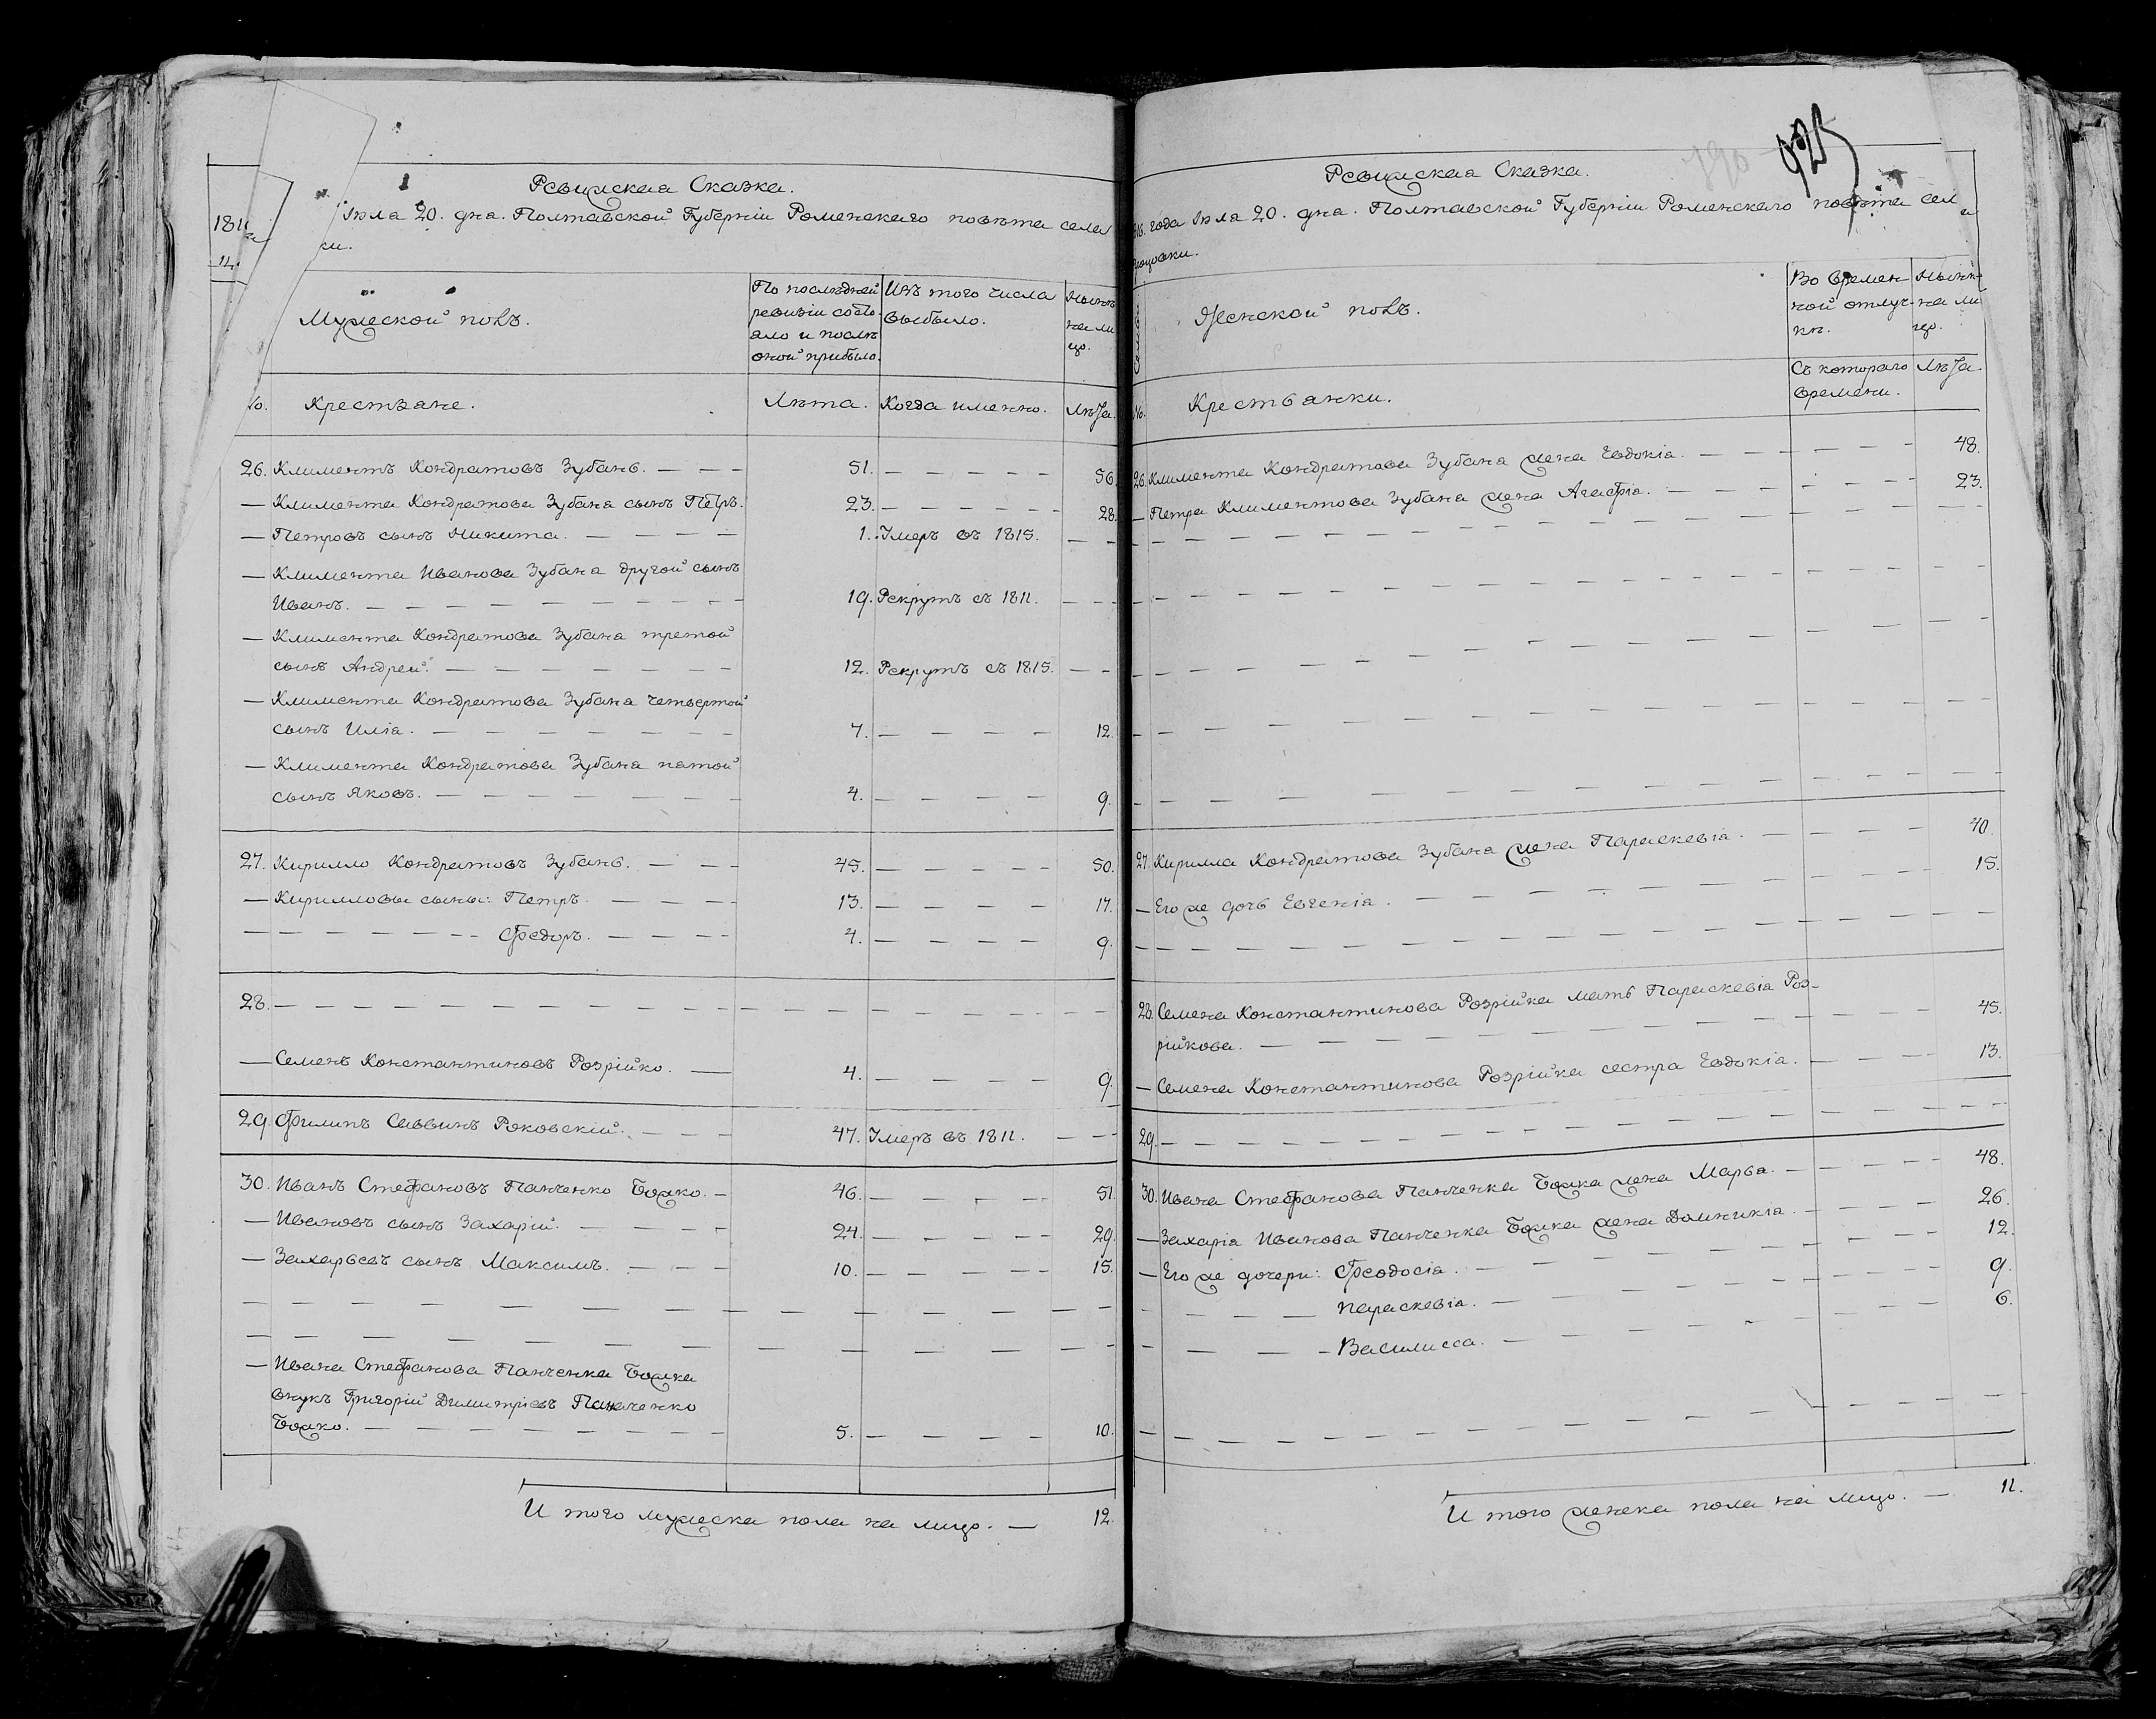 Ревижская Сказка.
1811
Июля 20. дня. Полтавской Губерніи Роменскаго повѣта села
ки.
Мужеской полъ.
По послѣдней ревизіи состо-
яло и послѣ
оной прибыло.
Изъ того числа
выбыло.
Нынѣ
на ли
цо.
№.
Крестьяне.
Лѣта.
Когда именно.
Лѣта.
26. Климентъ Кондратовъ Зубань. — — — 51. — — — — — 56.
— Климента Кондратова Зубана сынъ Петръ. 23. — — — — — 28.
— Петровъ сынъ Никита. — — — — 1. Умеръ въ 1815. — —
— Климента Иванова Зубана другой сынъ
Иванъ. — — — — — — — — 19. Рекрутъ съ 1811. — —
— Климента Кондратова Зубана третой
сынъ Андрей. — — — — — — — 12. Рекрутъ съ 1815. — —
— Климента Кондратова Зубана четвертой
сынъ Иліа. — — — — — — — 7. — — — — 12.
— Климента Кондратова Зубана пятой
сынъ Яковъ. — — — — — — — 4. — — — — 9.
27. Кирилло Кондратовъ Зубань. — — — 45. — — — — — 50.
— Кирилловы сыны: Петръ. — — — — 13. — — — — 17.
— — — — — — — Федоръ. — — — — 4. — — — — 9.
28. — — — — — — — — — — — — — — — —
— Семенъ Константиновъ Розрійко. — 4. — — — — 9.
29. Филипъ Саввинъ Роковскій. — — — 47. Умеръ въ 1811. — —
30. Иванъ Стефановъ Панченко Божко. — 46. — — — — 51.
— Ивановъ сынъ Захарій. — — — — 24. — — — — 29.
— Захарьевъ сынъ Максимъ. — — — 10. — — — — 15.
— Ивана Стефанова Панченка Божка
внукъ Григорій Димитріевъ Панченко
Божко. — — — — — — — — 5. — — — — 10.
И того мужеска пола на лицо. — 12.
925
Ревижская Сказка.
года Июля 20. дня. Полтавской Губерніи Роменскаго повѣта села
Женской полъ.
Во времен-
ной отлуч-
кѣ.
Нынѣ
на ли
цо.
№.
Крестьянки.
Съ котораго
времени.
Лѣта.
26. Климента Кондратова Зубана жена Евдокіа. — — — — — 48.
— Петра Климентова Зубана жена Агафіа. — — — — — 23.
27. Кирилла Кондратова Зубана жена Параскевіа. — — — — 40.
— Его же дочь Евгеніа. — — — — — — — — 15.
28. Семена Константинова Розрійка мать Параскевіа Роз-
рійкова. — — — — — — — — — 45.
— Семена Константинова Розрійка сестра Евдокіа. — — — — 13.
29. — — — — — — — — — — — — — —
30. Ивана Стефанова Панченка Божка жена Марьа. — — — — 48.
— Захаріа Иванова Панченка Божка жена Домникіа. — — — — 26.
— Его же дочери: Феодосіа. — — — — — — — 12.
— — — — Параскевіа. — — — — — — — 9.
— — — — Василисса. — — — — — — — 6.
И того женска пола на лицо. — 11.